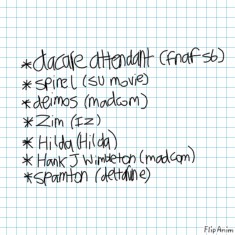 *dacare attendant (fnaf sb)
*spinel (SU movie)
*deimos (madcom)
*Zim (IZ)
*Hilda (Hilda)
*Hank J Wimbleton (madcom)
*spamton (deltarune)
FlipAnim